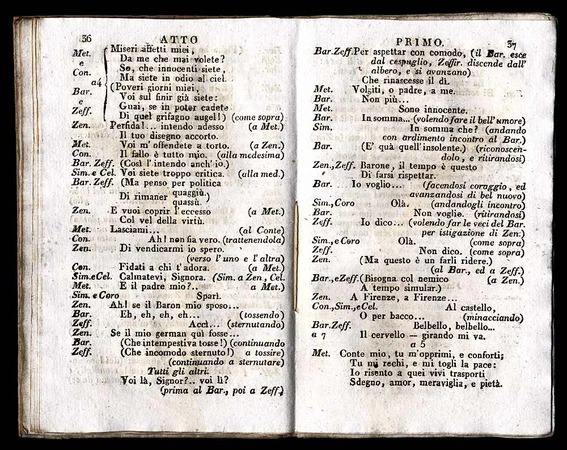 36 ATTO
Met. Miseri affetti miei,
e Da me che mai volete?
Con. Se, che innocenti siete,
a 4 Ma siete in odio al ciel.
Bar. (Poveri giorni miei,
e Voi sul finir già siete:
Zeff. Guai, se in poter cadete
Di quel grifagno augel!) (come sopra)
Zen. Perfida!... intendo adesso (a Met.)
Il tuo disegno accorto.
Met. Voi m'offendete a torto. (a Zen.)
Con. Il fallo è tutto mio. (alla medesima)
Bar. Zeff. (Così l'intendo anch'io.)
Sim. e Cel. Voi siete troppo critica. (alla med.)
Bar. Zeff. (Ma penso per politica
quaggiù.)
Di rimaner
quassù.
Zen. E vuoi coprir l'eccesso (a Met.)
Col vel della virtù.
Met. Lasciami... (al Conte)
Con. Ah! non fia vero. (trattenendola)
Zen. Di vendicarmi io spero.
(verso l'uno e l'altra)
Con. Fidati a chi t'adora. (a Met.)
Sim. e Cel. Calmatevi, Signora. (Sim. a Zen, Cel.
Met. E il padre mio?.. a Met.)
Sim. e Coro Sparì.
Zen. Ah! se il Baron mio sposo...
Bar. Eh, eh, eh, eh... (tossendo)
Zeff. Accì... (sternutando)
Zen. Se il mio german quì fosse...
Bar. (Che intempestiva tosse!) (continuando
Zeff. (Che incomodo sternuto!) a tossire)
(continuando a sternutare)
Tutti gli altri.
Voi là, Signor?.. voi lì?
(prima al Bar., poi a Zeff.)
PRIMO. 37
Bar. Zeff. Per aspettar con comodo, (il Bar. esce
dal cespuglio, Zeffir. discende dall'
albero, e si avanzano)
Che rinascesse il dì.
Met. Volgiti, o padre, a me.
Bar. Non più...
Met. Sono innocente.
Bar. In somma... (volendo fare il bell'umore)
Sim. In somma che? (andando
con ardimento incontro al Bar.)
Bar. (E' quà quell'insolente.) (riconoscen-
dolo, e ritirandosi)
Zen., Zeff. Barone, il tempo è questo
Di farsi rispettar.
Bar. Io voglio... (facendosi coraggio, ed
avanzandosi di bel nuovo)
Sim., Coro Olà. (andandogli incontro)
Bar. Non voglio. (ritirandosi)
Zeff. Io dico... (volendo far le veci del Bar.
per istigazione di Zen.)
Sim., e Coro Olà. (come sopra)
Zeff. Non dico. (come sopra)
Zen. (Ma questo è un farli ridere.)
(al Bar., ed a Zeff.)
Bar., e Zeff. (Bisogna col nemico (a Zen.)
A tempo simular.)
Zen. A Firenze, a Firenze...
Con., Sim., e Cel. Al castello,
O per bacco... (minacciando)
Bar. Zeff. Belbello, belbello...
a 7 Il cervello — girando mi va.
a 5
Met. Conte mio, tu m'opprimi, e conforti;
Tu mi rechi, e mi togli la pace:
Io risento a quei vivi trasporti
Sdegno, amor, meraviglia, e pietà.